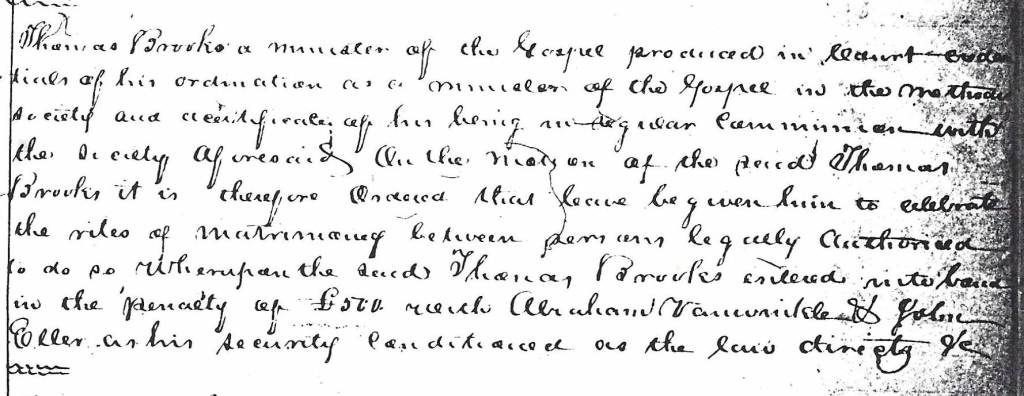 Thomas Brooks a minister off the Gospel produced in Court creden
tials of his ordination as a minister of the Gospel in the Methodis
Society and a certificate of his being in regular Communion with
the Society Aforesaid On the Motion of the said Thomas
Brooks it is therefore Ordered that leave be given him to celebrate
the rites of Matrimony between persons legally Authorised
to do so Whereupon the said Thomas Brooks entered into bond
in the penalty of £500 with Abraham Vanwinkle & John
Eller as his Security Conditioned as the law directs &c